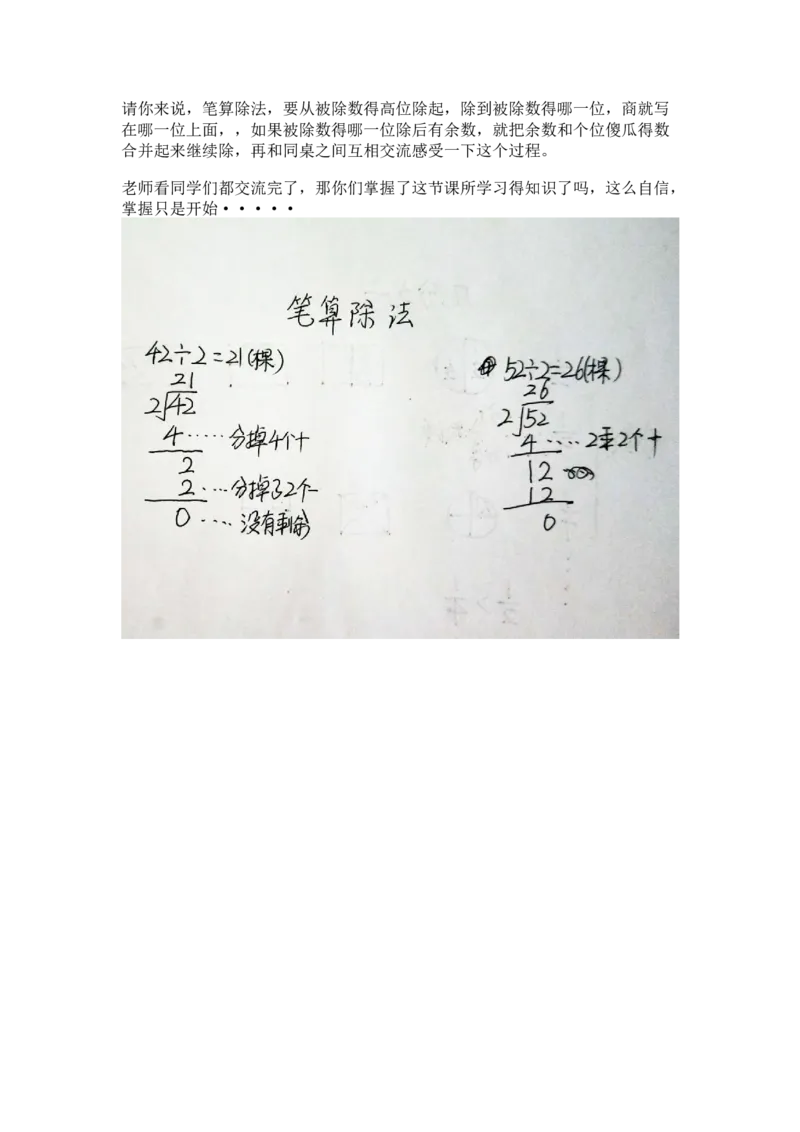 请你来说，笔算除法，要从被除数得高位除起，除到被除数得哪一位，商就写
在哪一位上面，，如果被除数得哪一位除后有余数，就把余数和个位傻瓜得数
合并起来继续除，再和同桌之间互相交流感受一下这个过程。
老师看同学们都交流完了，那你们掌握了这节课所学习得知识了吗，这么自信，
掌握只是开始·····
笔算除法
42÷2=21(棵)
21
2√42
4·····分掉4个十
2
2····分掉了2个一
0····没有剩余
52÷2=26(棵)
26
2√52
4····2乘2个十
12
12
0